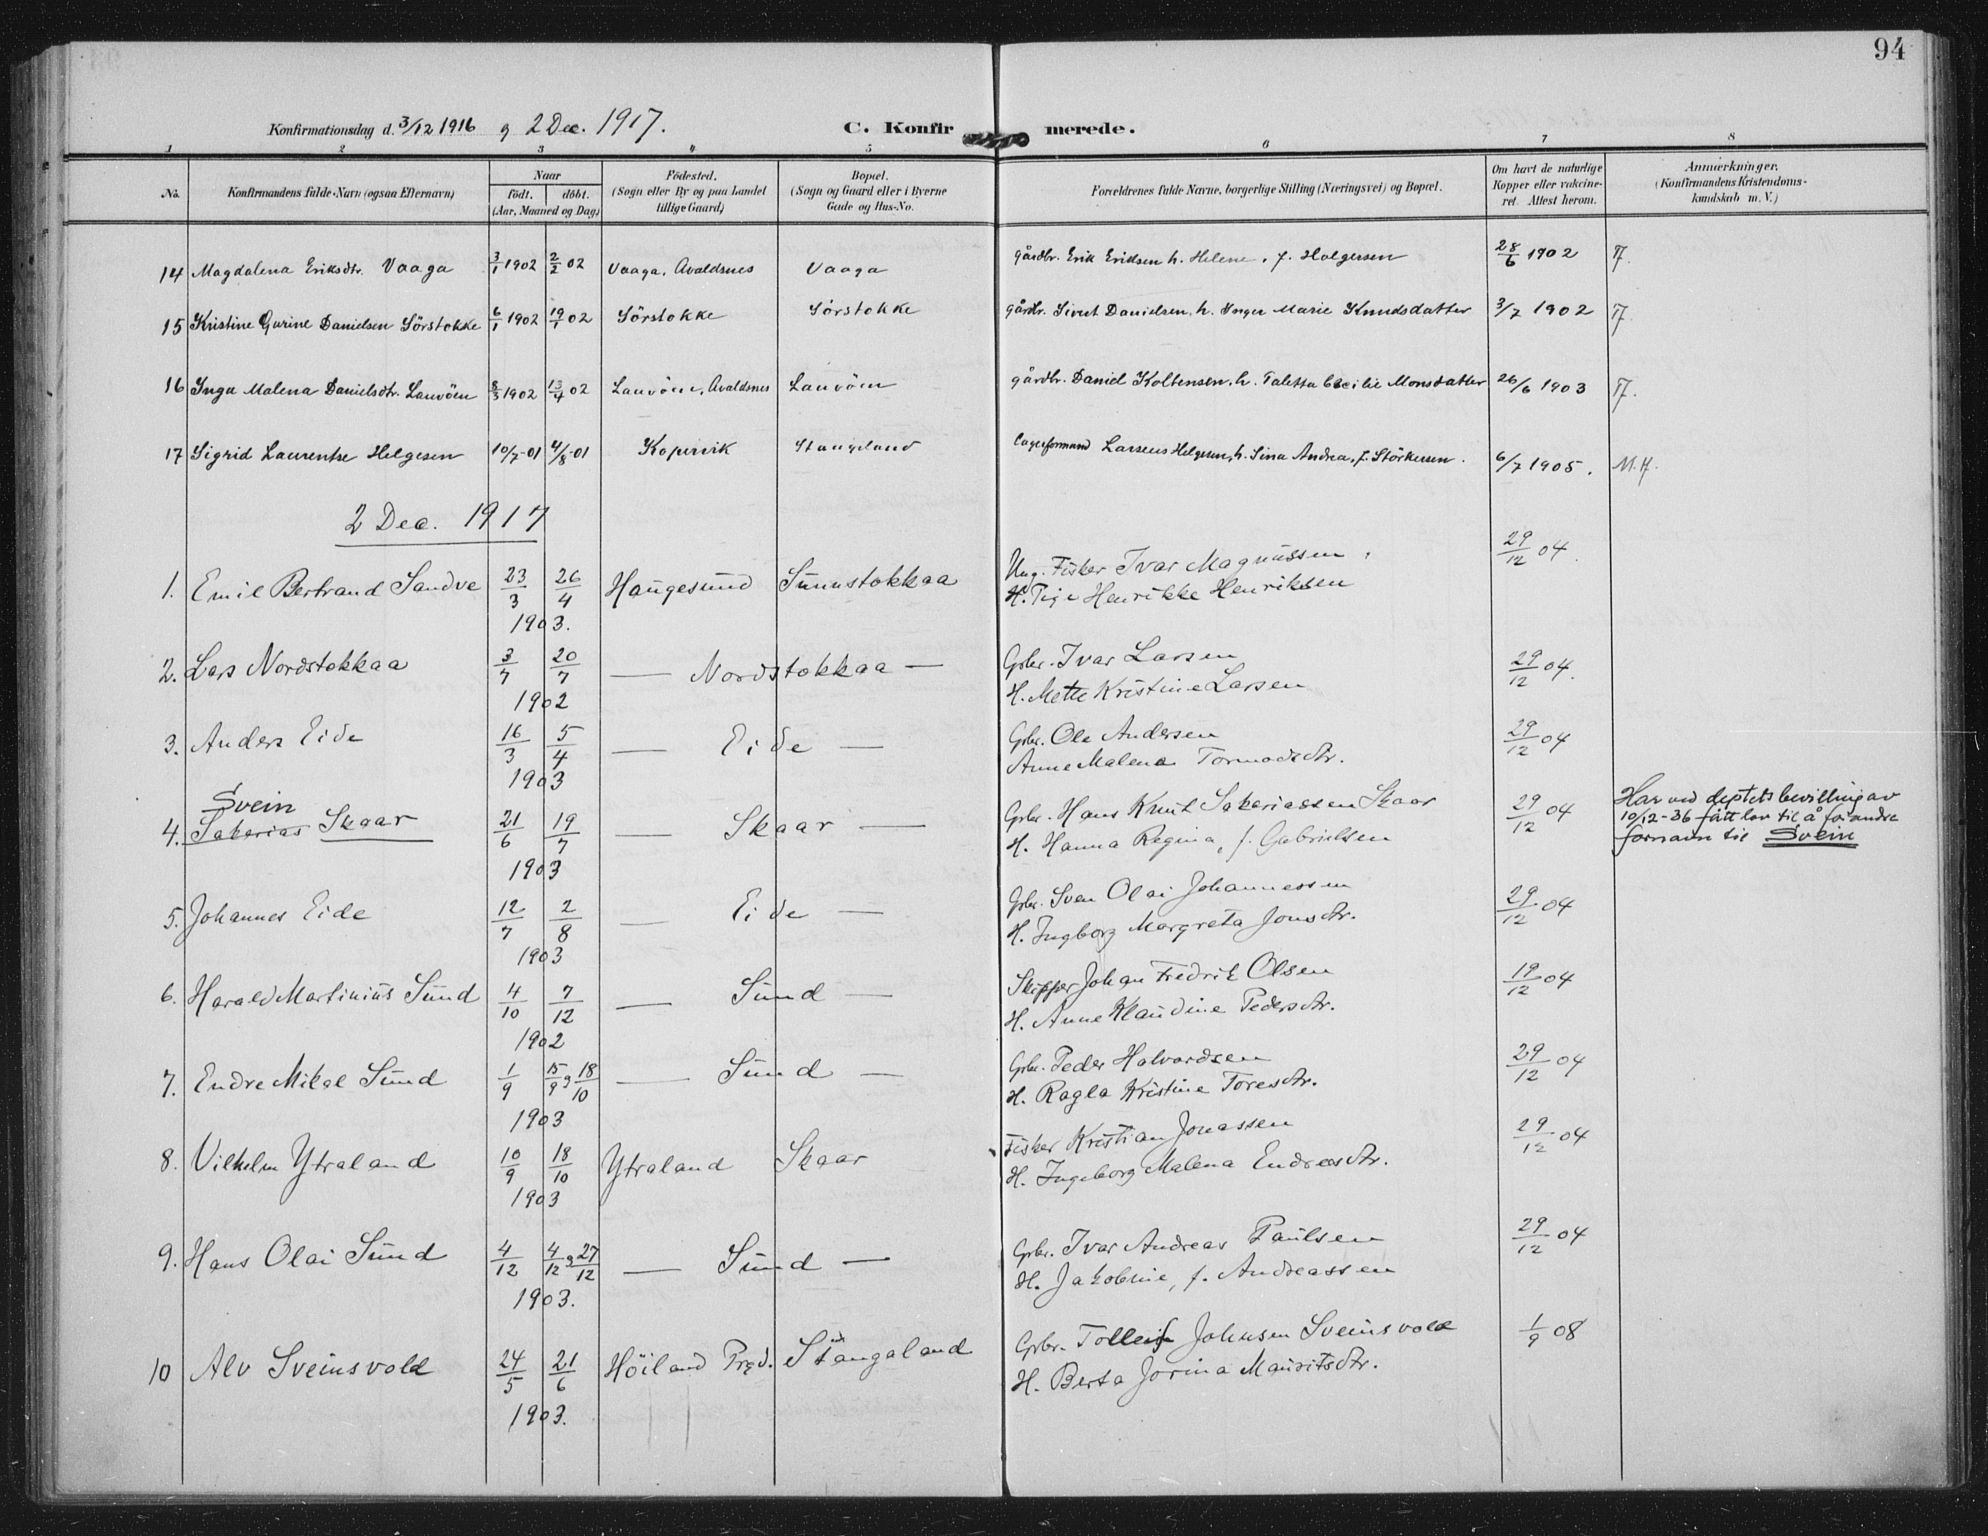 94
Konfirmationsdag d. 3/12 1916 og 2 Dec. 1917. C. Konfirmerede.
1 2 3 4 5 6 7 8
No. Konfirmandens fulde Navn (ogsaa Efternavn) Naar født. døbt. (Aar, Maaned og Dag) Födested. (Sogn eller By og paa Landet tillige Gaard) Bopæl. (Sogn og Gaard eller i Byerne Gade og Hus-No. Forældrenes fulde Navne, borgerlige Stilling (Næringsvei) og Bopæl. Om havt de naturlige Kopper eller vakcineret. Attest herom. Anmærkninger. (Konfirmandens Kristendomskundskab m. V.)
14 Magdalena Eriksdtr. Vaaga 3/1 1902 2/2 02 Vaaga, Avaldsnes Vaaga gårdbr. Erik Eriksen h. Helene, f. Holgersen 28/6 1902 T.
15 Kristine Gurine Danielsen Sörstokke 6/1 1902 19/1 02 Sörstokke Sörstokke gårdbr. Sivert Danielsen, h. Inger Marie Knudsdatter 3/7 1902 T.
16 Inga Malena Danielsdtr. Lauvöen 8/3 1902 13/4 02 Lauvöen, Avaldsnes Lauvöen gårdbr. Daniel Koltensen, h. Taletta Cecilie Monsdatter 26/6 1903 T.
17 Sigrid Laurentse Helgesen 10/7-01 4/8-01 Kopervik Stangeland Lagerformand Larseus Helgesen, h. Sina Andrea, f. Störkersen. 6/7 1905. M.H.
2 Dec. 1917
1. Emil Bertrand Sandve 23/3 26/4 Haugesund Sunnstokkaa Ung. Fisker Ivar Magnussen, 29/12 04.
1903. H. Henrikke Henriksen
2. Lars Nordstokkaa 3/7 20/7 — Nordstokkaa — Grbr. Ivar Larsen 29/12 04.
1902 H. Mette Kristine Larsen
3. Anders Eide 16/3 5/4 — Eide — Grbr. Ole Andersen 29/12 04
1903 Anne Malena Tormodsdtr.
Svein
4. Sakerias Skaar 21/6 19/7 — Skaar — Grbr. Hans Knut Sakeriassen Skaar 29/12 04 Har ved deptets bevilling av
1903 H. Hanna Regina, f. Gabrielsen 10/12-36 fått lov til å forandre
fornavn til Svein
5. Johannes Eide 12/7 2/8 — Eide — Grbr. Sven Olai Johannessen 29/12 04
1903 H. Ingborg Margreta Jonsdtr.
6. Harald Martinius Sund 4/10 7/12 — Sund — Skipper Johan Fredrik Olsen 19/12 04
1902 H. Anne Klaudine Pedersdtr.
7. Endre Mikal Sund 1/9 15/9 og 18/10 — Sund — Grbr. Peder Halvardsen 29/12 04
1903 H. Ragla Kristine Toresdtr.
8. Vilhelm Ytraland 10/9 18/10 Ytraland Skaar Fisker Kristian Jonassen 29/12 04
1903 H. Ingeborg Malena Endresdtr.
9. Hans Olai Sund 4/12 4/12 og 27/12 — Sund — Grbr. Ivar Andreas Paulsen 29/12 04
1903. H. Jakobine, f. Andreassen
10 Alv Sveinsvold 24/5 21/6 Höiland Præd. Stangaland Grbr. Tolleif Johnsen Sveinsvold 1/9 08
1903. H. Berta Jorina Mauritsdtr.